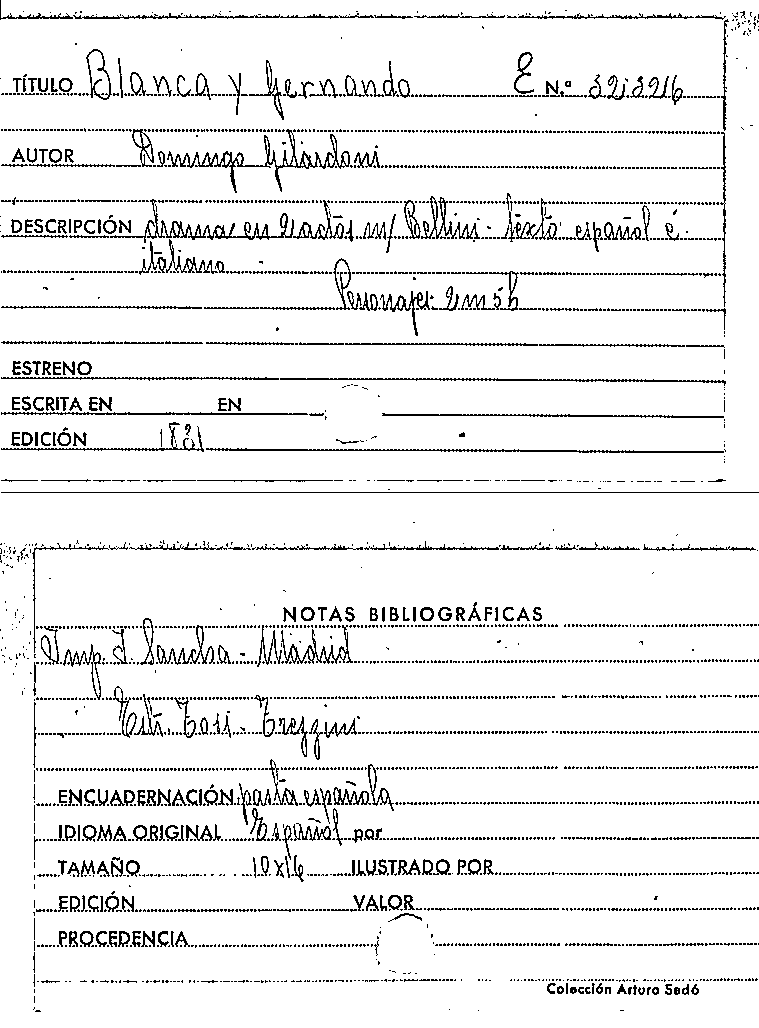 TÍTULO Blanca y Gernando E N.º 32;3216
AUTOR Domingo Gilardoni
DESCRIPCIÓN drama en 2 actos m/ Bellini - texto español é
italiano -
Personajes 2 m 5 h
ESTRENO
ESCRITA EN EN
EDICIÓN 1831
NOTAS BIBLIOGRÁFICAS
Imp. I Sancha - Madrid
Estr. Tosi - Trezzini
ENCUADERNACIÓN pasta española
IDIOMA ORIGINAL Español por
TAMAÑO 10 x 16 ILUSTRADO POR
EDICIÓN VALOR
PROCEDENCIA
Colección Arturo Sedó